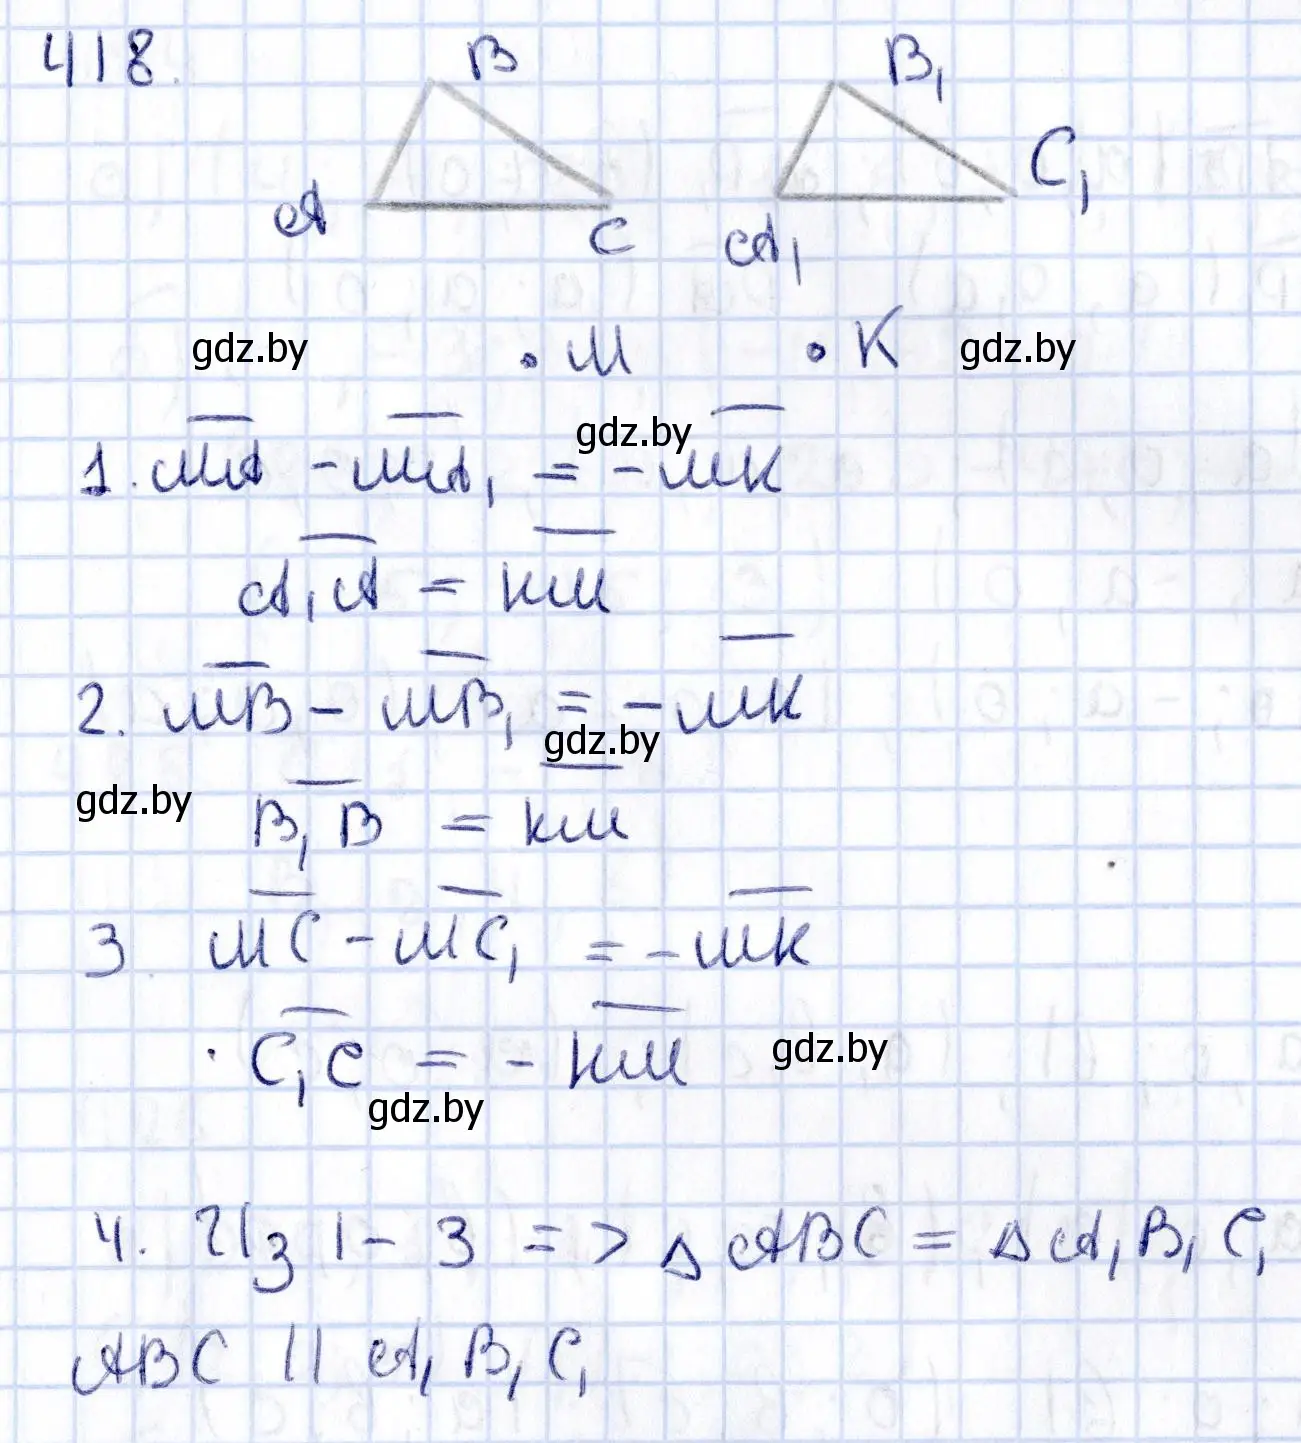 418.
B B₁
A C A₁ C₁
gdz.by · M · K gdz.by
gdz.by
1. M̅A̅ - M̅A̅₁ = - M̅K̅
A̅₁A̅ = K̅M̅
2. M̅B̅ - M̅B̅₁ = - M̅K̅
gdz.by
gdz.by
B̅₁B̅ = K̅M̅
3. M̅C̅ - M̅C̅₁ = - M̅K̅
· C̅₁C̅ = - K̅M̅
gdz.by
gdz.by
4. Из 1 - 3 => △ ABC = △ A₁B₁C₁
ABC || A₁B₁C₁